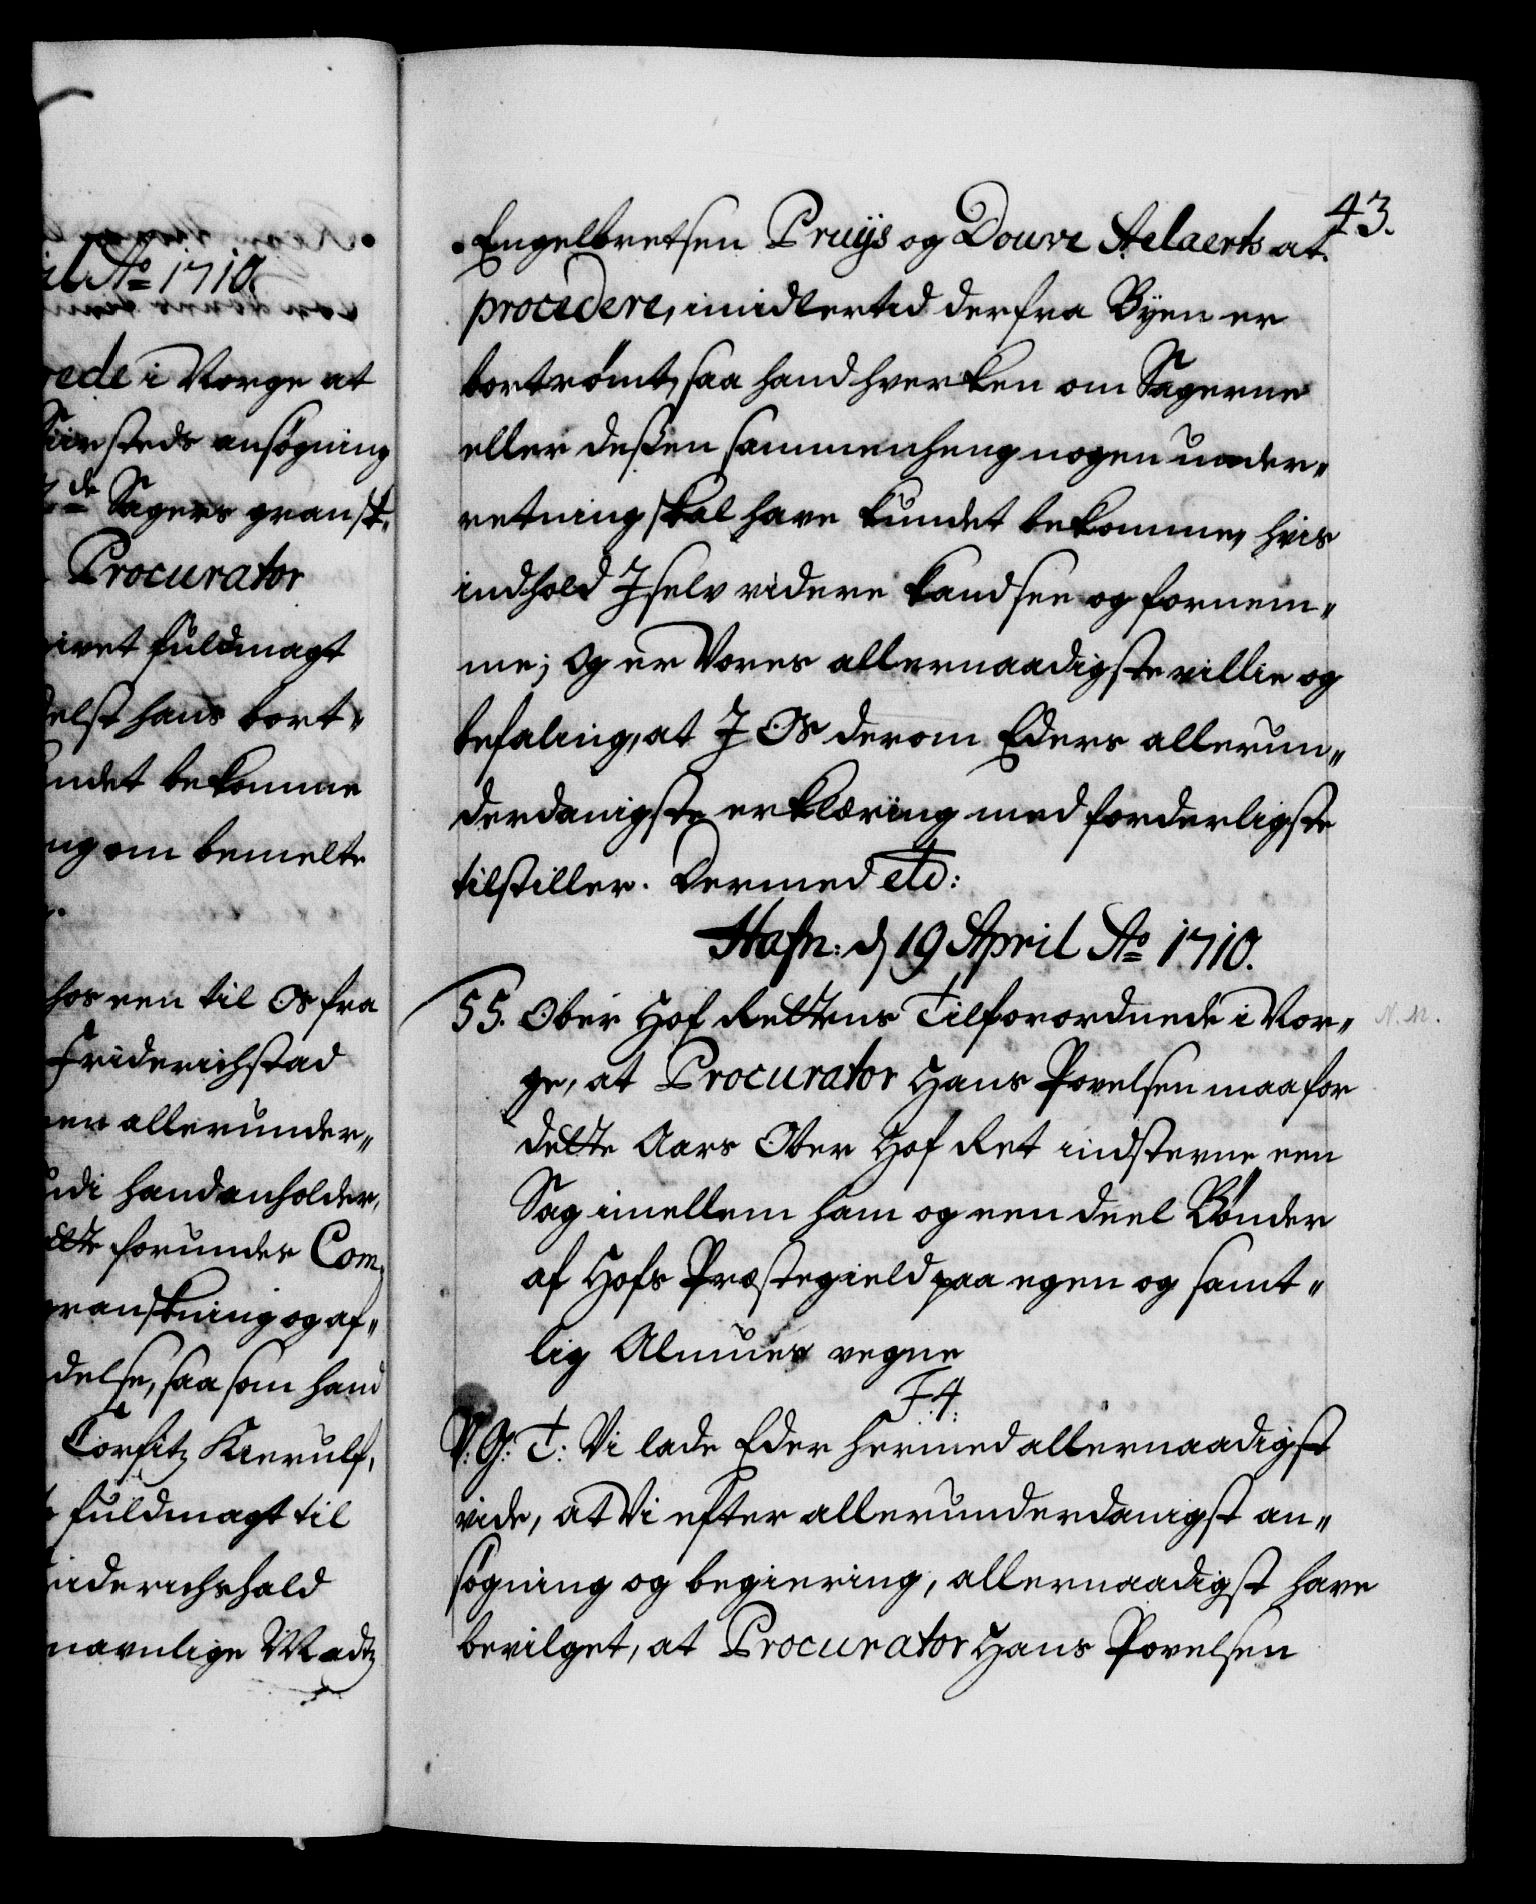 il Ao 1710.
rede i Norge at
Biirsteds ansøgning
de Sagers gransk,
Procurator
ivet fuldmagt
delst hans bort„
undet bekomme
ng om bemelte
hos een til Os fra
Friderichstad
en allerunder„
udi hand anholder,
ette forundes Com„
granskning og af„
delse, saa som hand
Corfitz Kierulf,
fuldmagt til
riderichshald
navnlige Madtz
43.
Engelbretsen Pruijs og Douwe Aelaerts at
procedere, imidlertid derfra Byen er
bortrømt, saa hand hverken om Sagerne
eller deßen sammenheng nogen under„
retning skal have kundet bekomme, hvis
indhold I self videre kand see og fornem„
me; Og er Vores allernaadigste villie og
befaling, at I Os derom Eders allerun„
derdanigste erklæring med forderligste
tilstiller. Dermed etc:
Hafn: d 19 April Ao 1710.
55. Ober Hof Rettens Tilforordnede i Nor„
ge, at Procurator Hans Povelsen maa for
dette Aars Ober Hof Ret indsterne een
Sag imellem ham og een deel Bønder
af Hofs Præstegield paa egen og samt„
lig Almues vegne
F4.
V: G: T: Vi lade Eder hermed allernaadigst
vide, at Vi efter allerunderdanigst an„
søgning og begiering, allernaadigst have
bevilget, at Procurator Hans Povelsen
N. N.